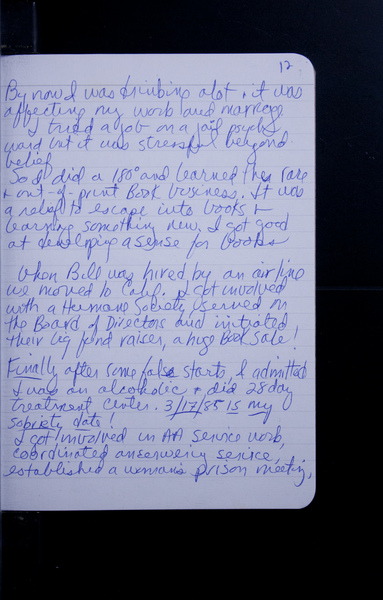 12
By now I was drinking alot + it was
affecting my work and marriage
I tried a job on a jail psych
ward but it was stressful beyond
belief.
So I did a 180° and learned the rare
+ out-of-print Book business. It was
a relief to escape into books +
learning something new. I got good
at developing a sense for books
When Bill was hired by an airline
we moved to Calif. I got involved
with a Humane Society, served on
the Board of Directors and initiated
their big fund raiser, a huge Book Sale!
Finally after some false starts, I admitted
I was an alcoholic + did 28 day
treatment center. 3/17/85 is my
sobriety date!
I got involved in AA service work,
coordinated answering service,
established a woman's prison meeting,